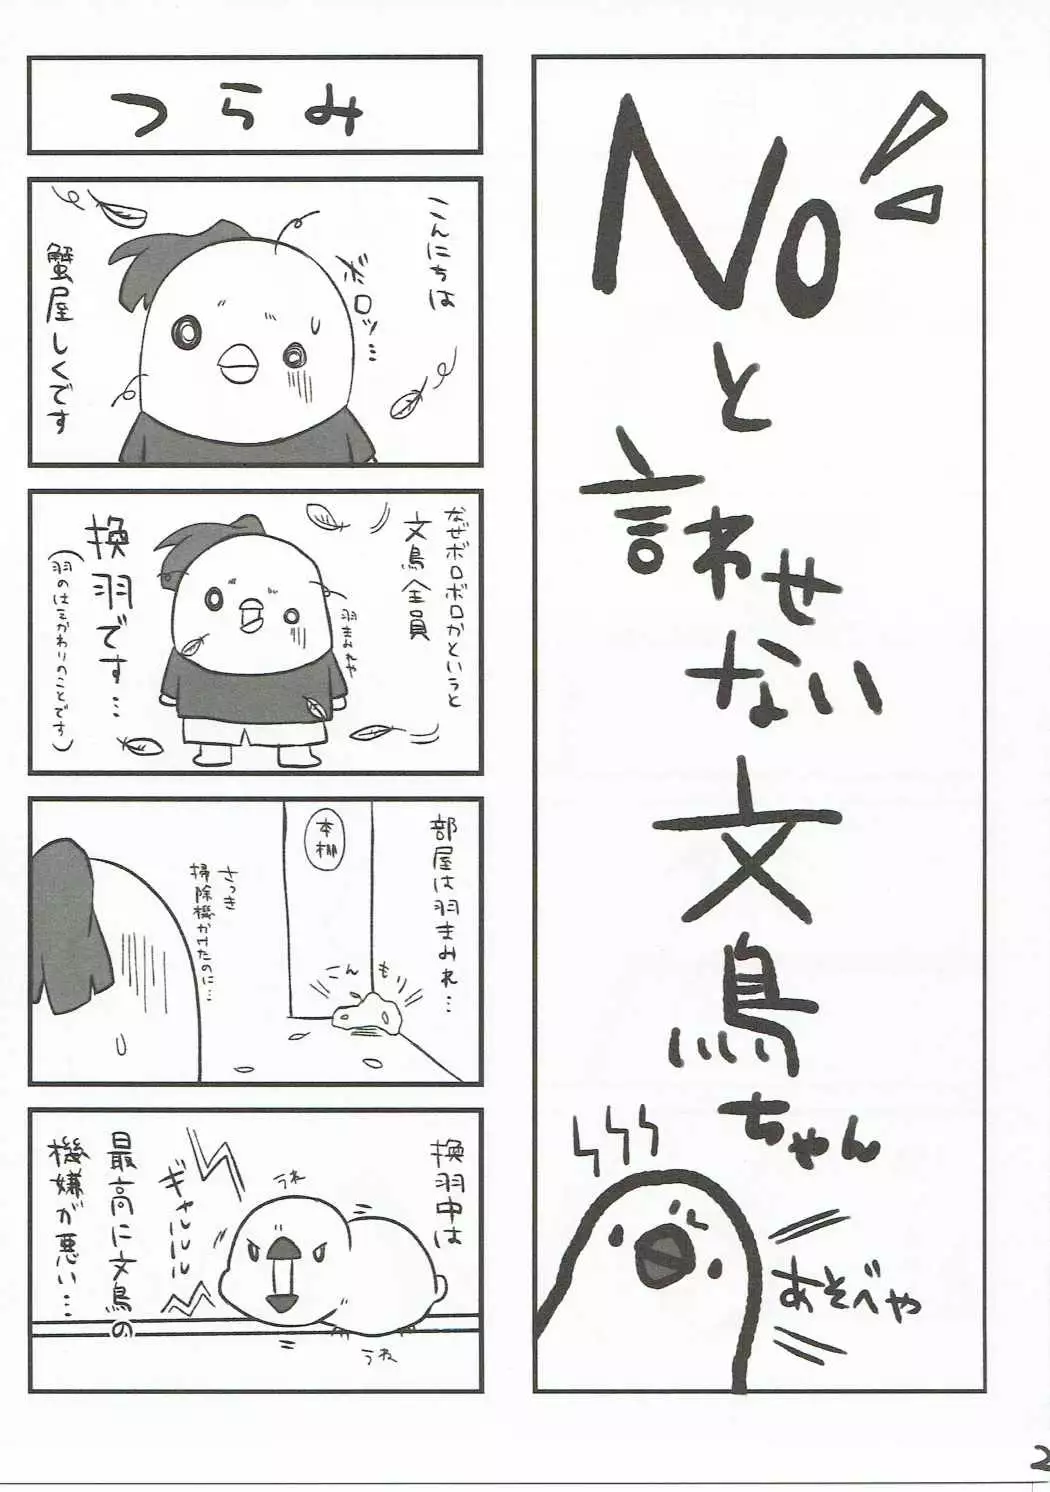 Noと
言わせ
ない
文鳥
ちゃん
あそべや
つらみ
こんにちは
ボロッ…
蟹屋しくです
なぜボロボロかというと
文鳥全員
羽まみれや
換羽です…
(羽のはえかわりのことです)
部屋は羽まみれ…
本棚
こんもり
さっき
掃除機かけたのに…
換羽中は
うね
うね
ギャルルル
最高に文鳥の
機嫌が悪い…
2